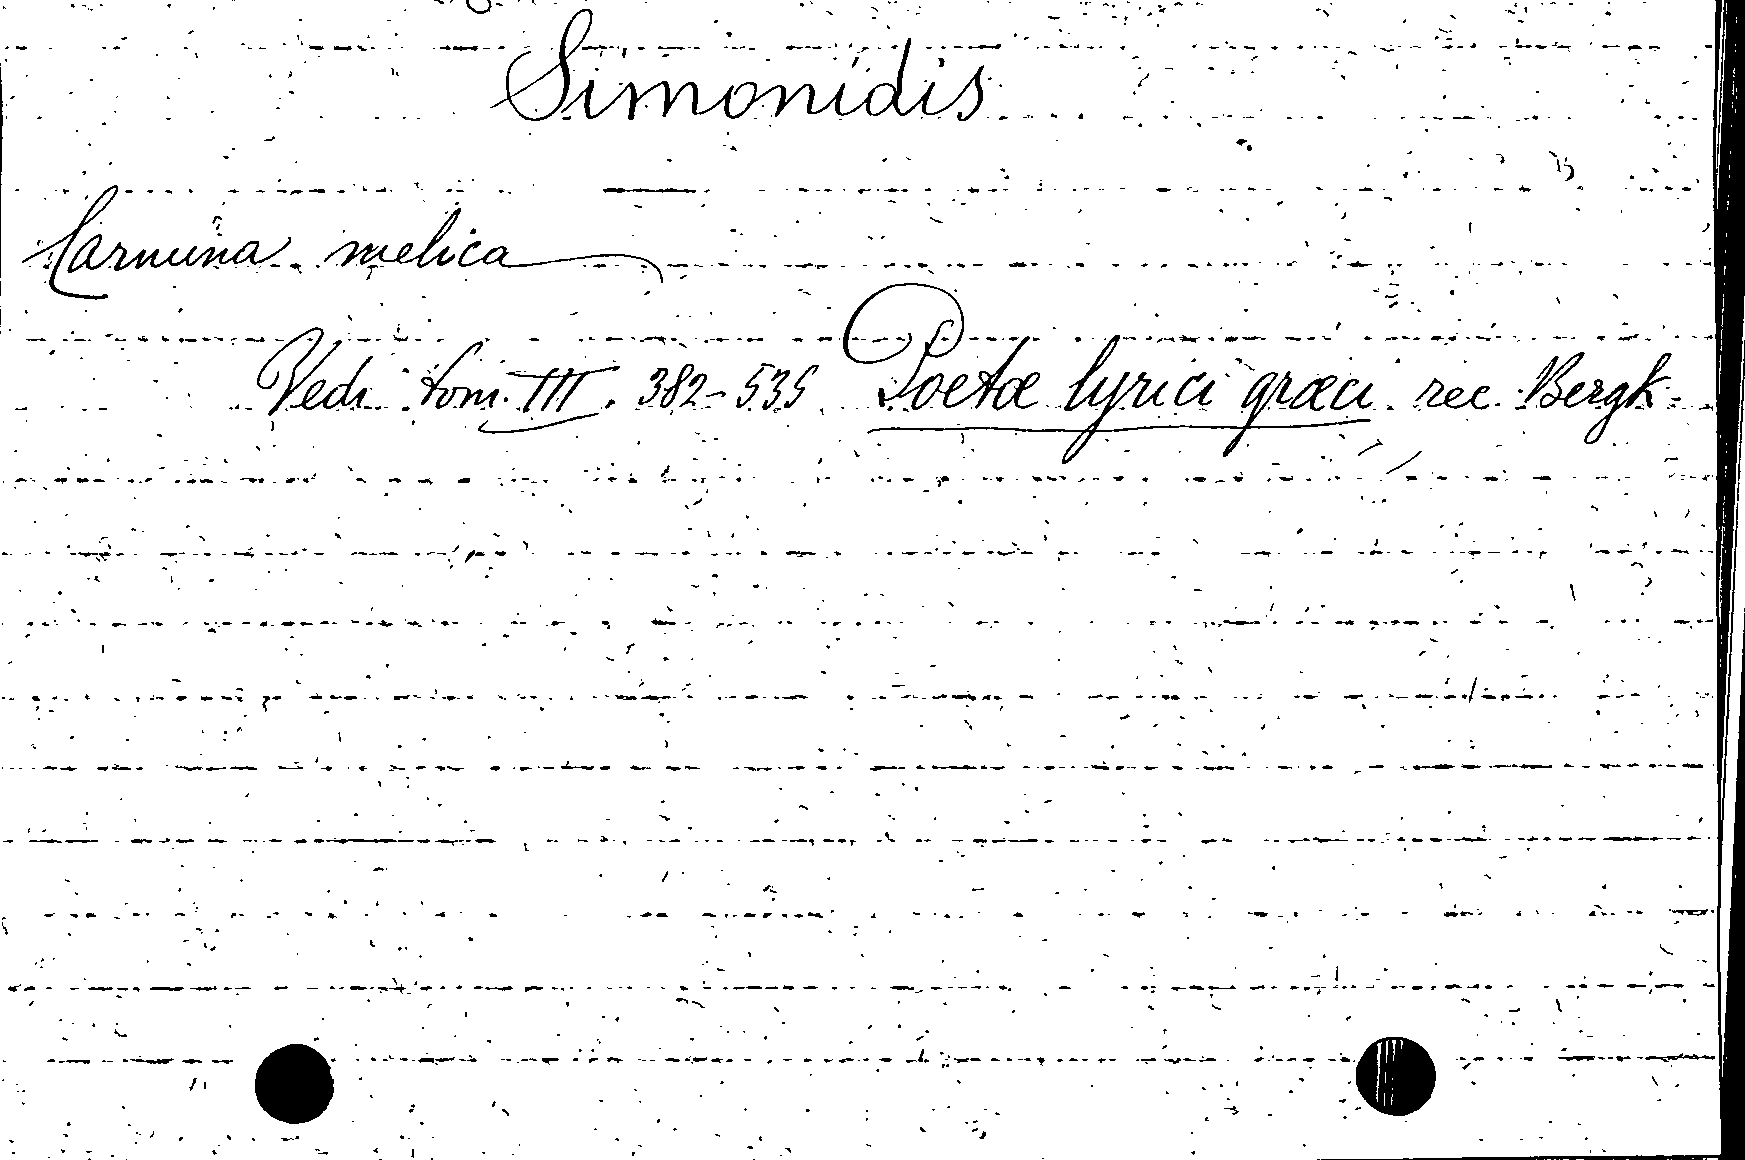 Simonidis
Carmina melica
Vedi tom. III. 382-535 Poetæ lyrici græci rec. Bergk